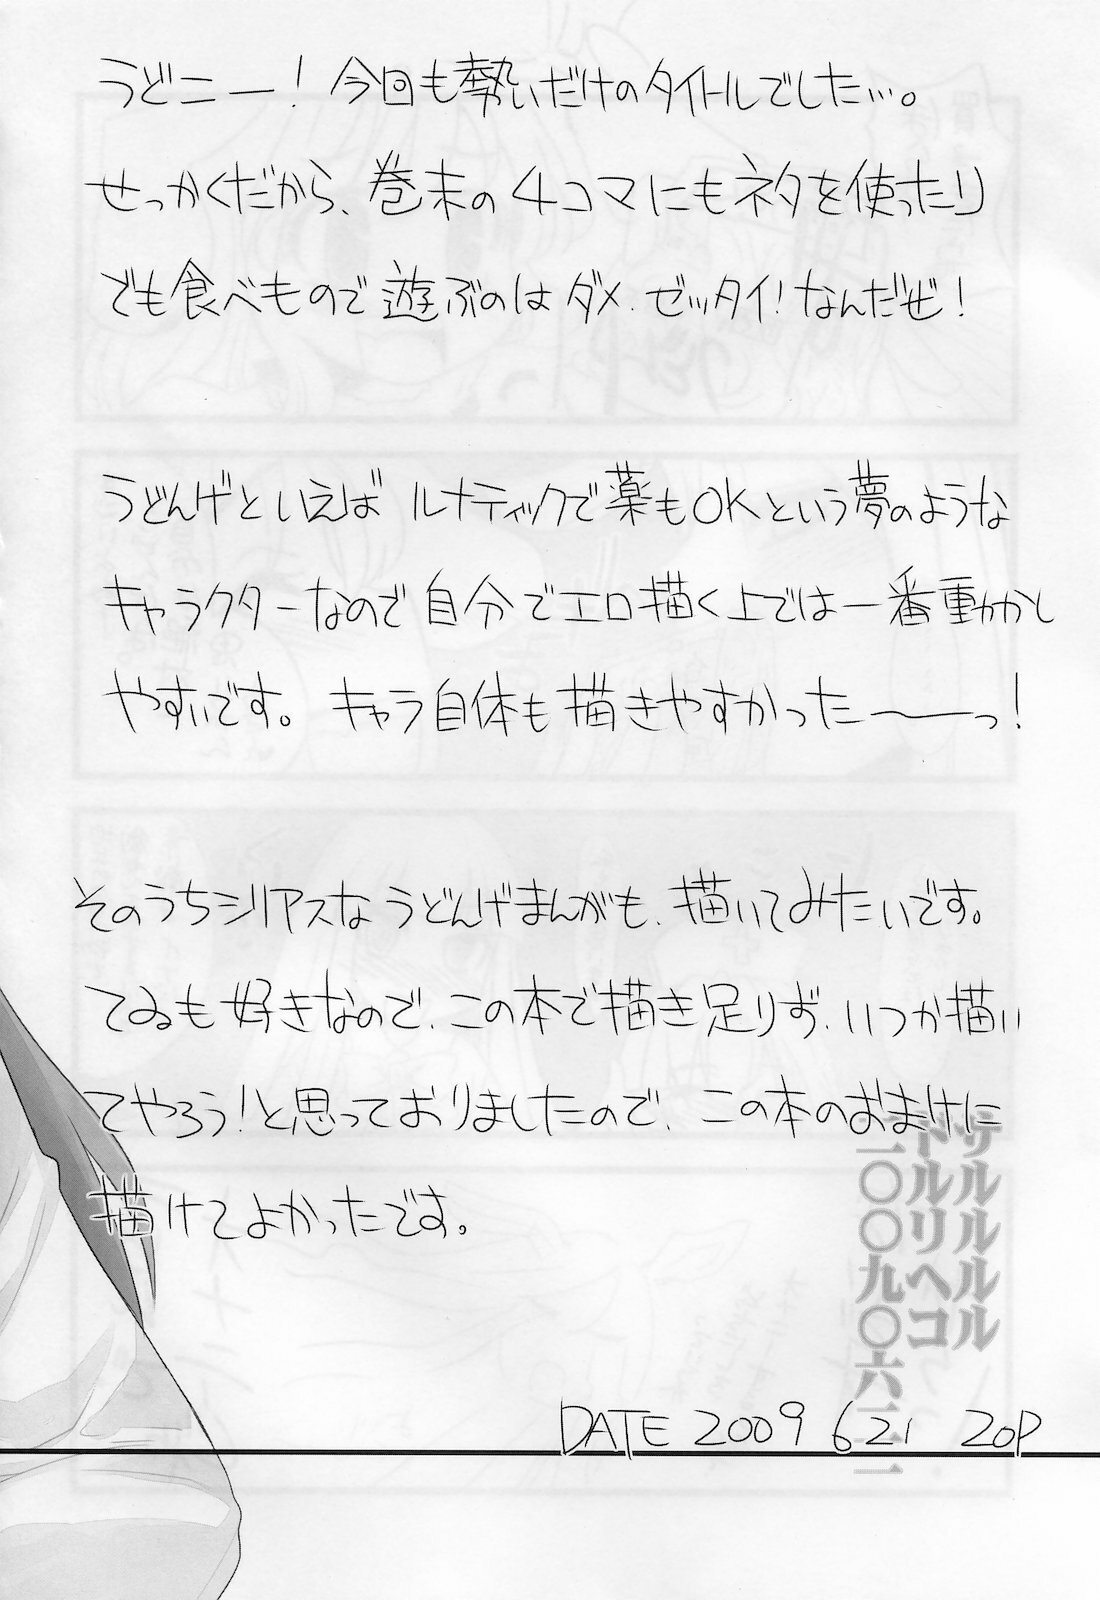 うどニー！今回も勢いだけのタイトルでした…。
せっかくだから、巻末の4コマにもネタを使ったり
でも食べもので遊ぶのはダメ．ゼッタイ！なんだぜ！
うどんげといえば ルナティックで薬もOKという夢のような
キャラクターなので自分でエロ描く上では一番動かし
やすいです。キャラ自体も描きやすかった〜ーっ！
そのうちシリアスなうどんげまんがも、描いてみたいです。
てゐも好きなので、この本で描き足りず、いつか描い
てやろう！と思っておりましたので、この本のおまけに
描けてよかったです。
ケルルルル
ドルリヘコ
二〇〇九〇六二一
DATE 2009 6 21 ZOP